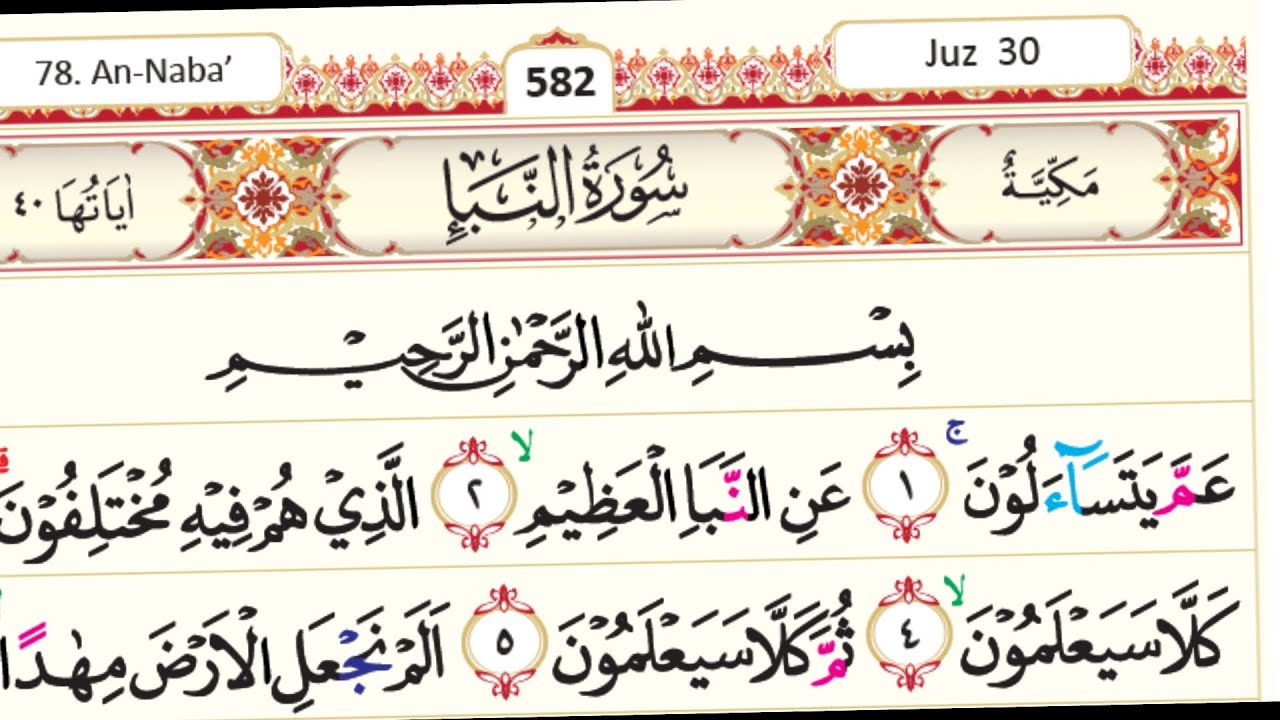 78. An-Naba’ 582 Juz 30
مَكِّيَّةٌ سُوْرَةُ النَّبَإِ اٰيَاتُهَا ٤٠
بِسْمِ اللّٰهِ الرَّحْمٰنِ الرَّحِيْمِ
عَمَّ يَتَسَاۤءَلُوْنَۚ ١ عَنِ النَّبَاِ الْعَظِيْمِۙ ٢ الَّذِيْ هُمْ فِيْهِ مُخْتَلِفُوْنَۗ
كَلَّا سَيَعْلَمُوْنَۙ ٤ ثُمَّ كَلَّا سَيَعْلَمُوْنَ ٥ اَلَمْ نَجْعَلِ الْاَرْضَ مِهٰدًاۙ